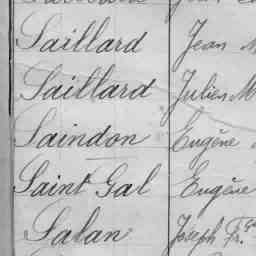 Saillard Jean
Saillard Julien M
Saindon Eugène
Saint Gal Eugène
Salan Joseph Fr.